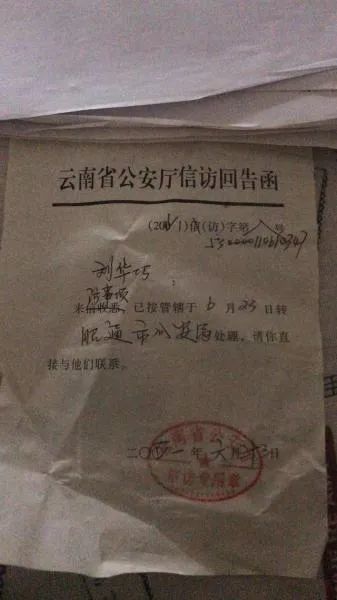 云南省公安厅信访回告函
(2011)信(访)字第 号
刘华巧
：
来信收悉，已按管辖于6月23日转
昭通市公安局处理，请你直
接与他们联系。
二〇一一年六月 日
云南省公安厅
信访专用章